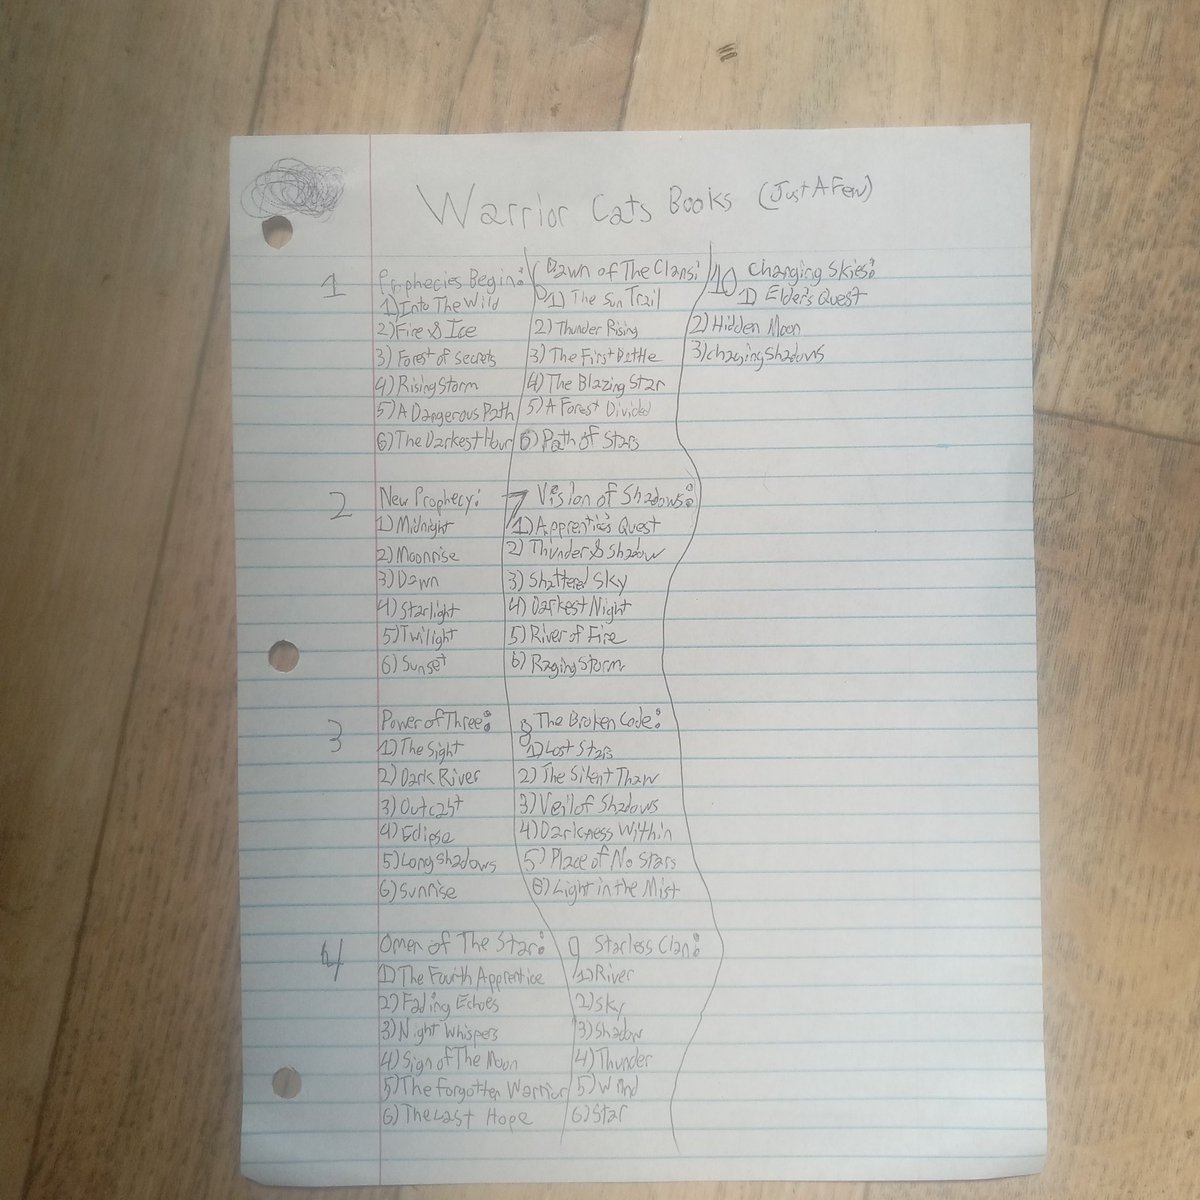 Warrior Cats Books (Just A Few)
1 Prophecies Begin:
1) Into The Wild
2) Fire & Ice
3) Forest of Secrets
4) Rising Storm
5) A Dangerous Path
6) The Darkest Hour
2 New Prophecy:
1) Midnight
2) Moonrise
3) Dawn
4) Starlight
5) Twilight
6) Sunset
3 Power of Three:
1) The Sight
2) Dark River
3) Outcast
4) Eclipse
5) Long Shadows
6) Sunrise
4 Omen of The Star:
1) The Fourth Apprentice
2) Fading Echoes
3) Night Whispers
4) Sign of The Moon
5) The Forgotten Warrior
6) The Last Hope
6 Dawn of The Clans:
1) The Sun Trail
2) Thunder Rising
3) The First Battle
4) The Blazing Star
5) A Forest Divided
6) Path of Stars
7 Vision of Shadows:
1) Apprentice's Quest
2) Thunder & Shadow
3) Shattered Sky
4) Darkest Night
5) River of Fire
6) Raging Storm
8 The Broken Code:
1) Lost Stars
2) The Silent Thaw
3) Veil of Shadows
4) Darkness Within
5) Place of No Stars
6) Light in the Mist
9 Starless Clan:
1) River
2) Sky
3) Shadow
4) Thunder
5) Wind
6) Star
10 Changing Skies:
1) Elder's Quest
2) Hidden Moon
3) Chaging Shadows